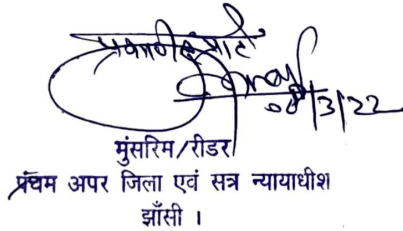 08/3/22
मुंसरिम/रीडर
पंचम अपर जिला एवं सत्र न्यायाधीश
झाँसी ।